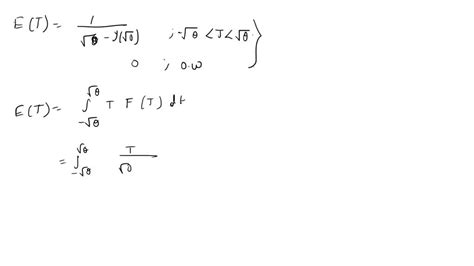 E(T) = 1 / (√θ - (√θ)) ; -√θ < T < √θ
0 ; o.w
E(T) = ∫_{-√θ}^{√θ} T F(T) dt
= ∫_{-√θ}^{√θ} T / √θ